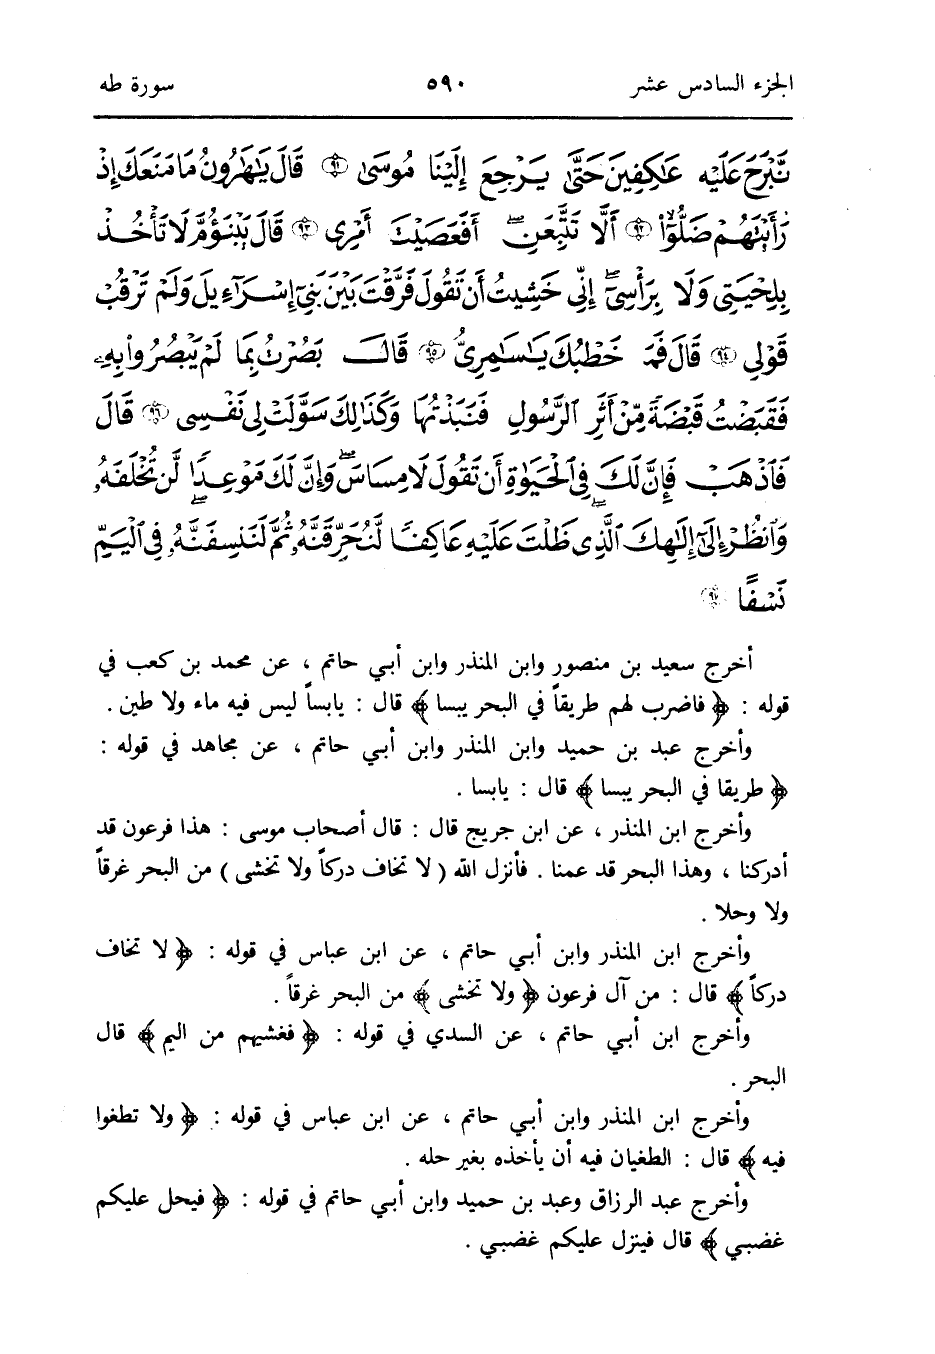 الجزء السادس عشر ٥٩٠ سورة طه
نَّبْرَحَ عَلَيْهِ عَـٰكِفِينَ حَتَّىٰ يَرْجِعَ إِلَيْنَا مُوسَىٰ ﴿٩١﴾ قَالَ يَـٰهَـٰرُونُ مَا مَنَعَكَ إِذْ
رَأَيْتَهُمْ ضَلُّوٓا۟ ﴿٩٢﴾ أَلَّا تَتَّبِعَنِ ۖ أَفَعَصَيْتَ أَمْرِى ﴿٩٣﴾ قَالَ يَبْنَؤُمَّ لَا تَأْخُذْ
بِلِحْيَتِى وَلَا بِرَأْسِىٓ ۖ إِنِّى خَشِيتُ أَن تَقُولَ فَرَّقْتَ بَيْنَ بَنِىٓ إِسْرَٰٓءِيلَ وَلَمْ تَرْقُبْ
قَوْلِى ﴿٩٤﴾ قَالَ فَمَا خَطْبُكَ يَـٰسَـٰمِرِىُّ ﴿٩٥﴾ قَالَ بَصُرْتُ بِمَا لَمْ يَبْصُرُوا۟ بِهِۦ
فَقَبَضْتُ قَبْضَةً مِّنْ أَثَرِ ٱلرَّسُولِ فَنَبَذْتُهَا وَكَذَٰلِكَ سَوَّلَتْ لِى نَفْسِى ﴿٩٦﴾ قَالَ
فَٱذْهَبْ فَإِنَّ لَكَ فِى ٱلْحَيَوٰةِ أَن تَقُولَ لَا مِسَاسَ ۖ وَإِنَّ لَكَ مَوْعِدًا لَّن تُخْلَفَهُۥ ۖ
وَٱنظُرْ إِلَىٰٓ إِلَـٰهِكَ ٱلَّذِى ظَلْتَ عَلَيْهِ عَاكِفًا ۖ لَّنُحَرِّقَنَّهُۥ ثُمَّ لَنَنسِفَنَّهُۥ فِى ٱلْيَمِّ
نَسْفًا ﴿٩٧﴾
أخرج سعيد بن منصور وابن المنذر وابن أبي حاتم ، عن محمد بن كعب في
قوله : ﴿ فاضرب لهم طريقاً في البحر يبسا ﴾ قال : يابساً ليس فيه ماء ولا طين .
وأخرج عبد بن حميد وابن المنذر وابن أبي حاتم ، عن مجاهد في قوله :
﴿ طريقا في البحر يبسا ﴾ قال : يابسا .
وأخرج ابن المنذر ، عن ابن جريج قال : قال أصحاب موسى : هذا فرعون قد
أدركنا ، وهذا البحر قد عمنا . فأنزل الله ( لا تخاف دركاً ولا تخشى ) من البحر غرقاً
ولا وحلا .
وأخرج ابن المنذر وابن أبي حاتم ، عن ابن عباس في قوله : ﴿ لا تخاف
دركاً ﴾ قال : من آل فرعون ﴿ ولا تخشى ﴾ من البحر غرقاً .
وأخرج ابن أبي حاتم ، عن السدي في قوله : ﴿ فغشيهم من اليم ﴾ قال
البحر .
وأخرج ابن المنذر وابن أبي حاتم ، عن ابن عباس في قوله : ﴿ ولا تطغوا
فيه ﴾ قال : الطغيان فيه أن يأخذه بغير حله .
وأخرج عبد الرزاق وعبد بن حميد وابن أبي حاتم في قوله : ﴿ فيحل عليكم
غضبي ﴾ قال فينزل عليكم غضبي .